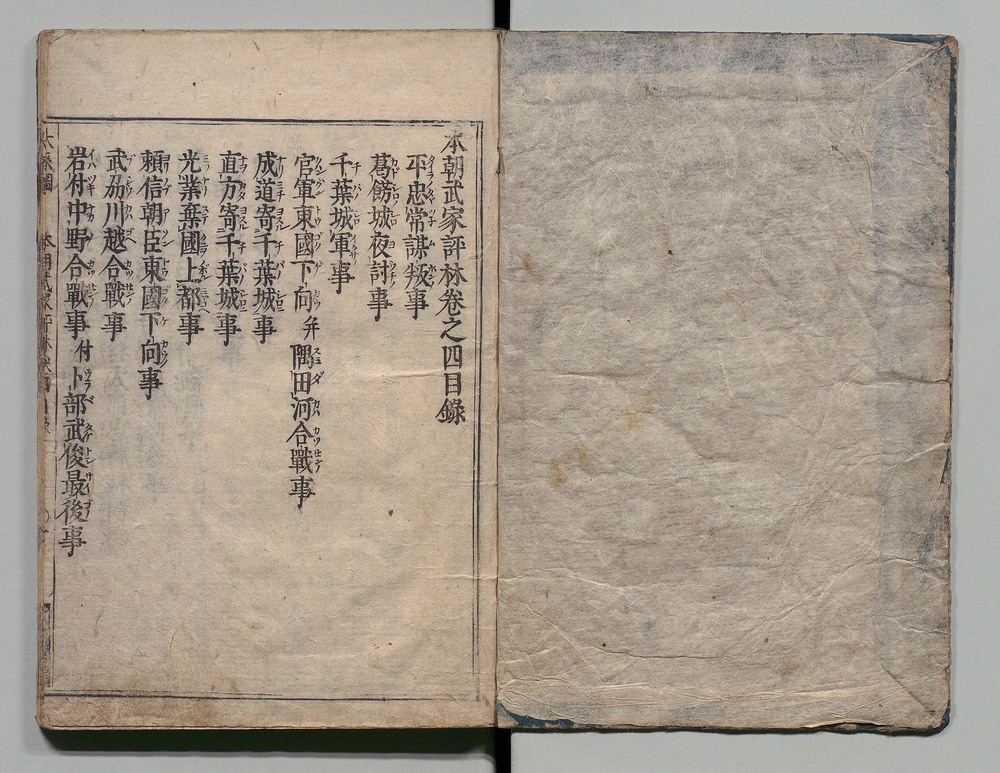 本朝武家評林卷之四目録
平忠常謀叛事
葛餝城夜討事
千葉城軍事
官軍東國下向并隅田河合戰事
成道寄千葉城事
直方寄千葉城事
光業棄國上都事
頼信朝臣東國下向事
武刕川越合戰事
岩付中野合戰事付卜部武俊最後事